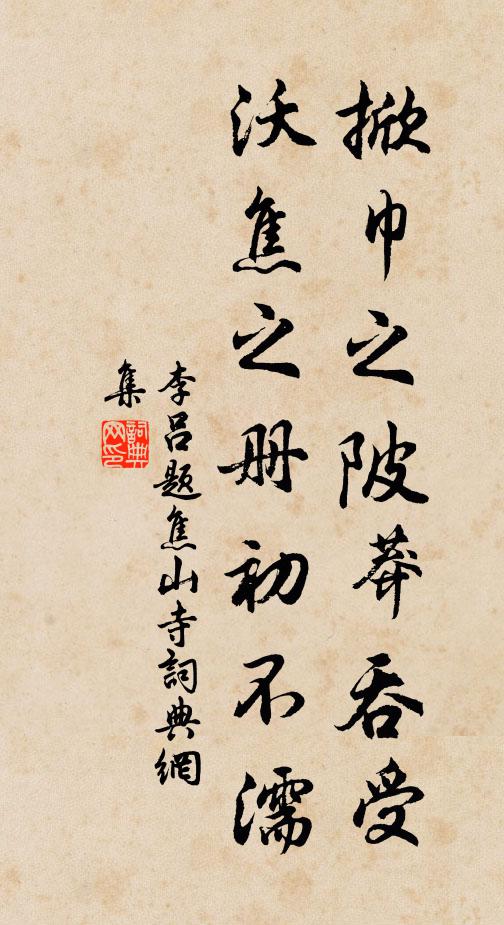 掀巾之陂莽吞受
沃焦之册初不濡
李吕题焦山寺詞典網
集
詞典
网印